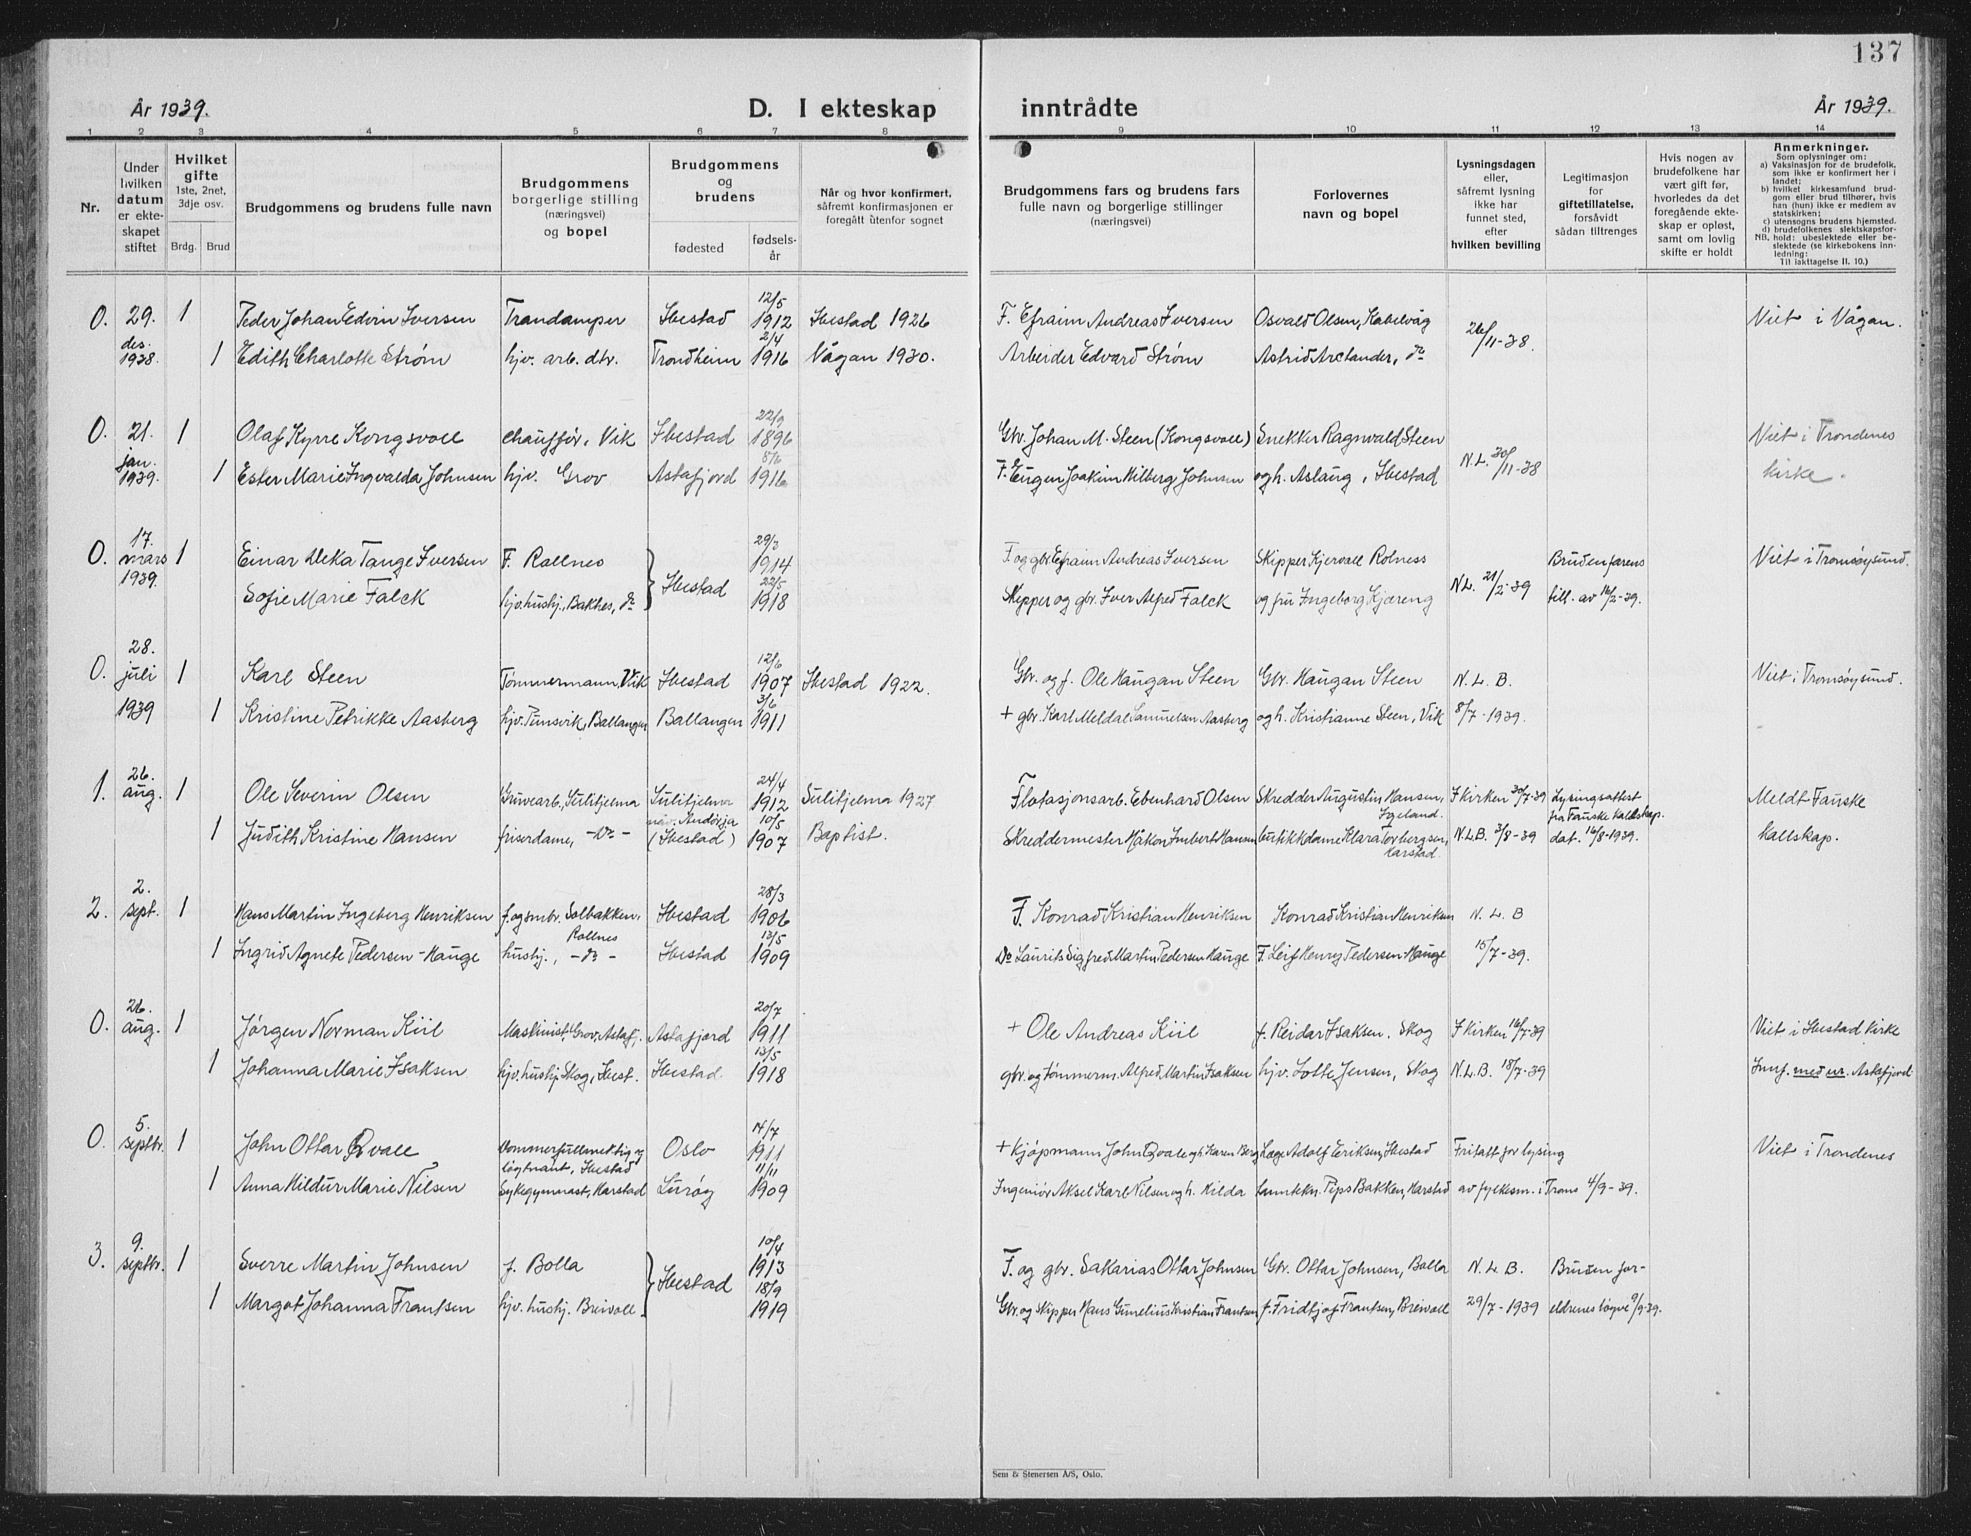 137
År 1939.
D. I ekteskap inntrådte
År 1939.
1 2 3 4 5 6 7 8 9 10 11 12 13 14
Nr.
Under hvilken datum er ekteskapet stiftet
Hvilket gifte
1ste, 2net, 3dje osv.
Brdg. Brud
Brudgommens og brudens fulle navn
Brudgommens borgerlige stilling (næringsvei) og bopel
Brudgommens og brudens
fødested
fødsels-år
Når og hvor konfirmert, såfremt konfirmasjonen er foregått utenfor sognet
Brudgommens fars og brudens fars fulle navn og borgerlige stillinger (næringsvei)
Forlovernes navn og bopel
Lysningsdagen eller, såfremt lysning ikke har funnet sted, efter hvilken bevilling
Legitimasjon for giftetillatelse, forsåvidt sådan tiltrenges
Hvis nogen av brudefolkene har vært gift før, hvorledes da det foregående ekteskap er opløst, samt om lovlig skifte er holdt
Anmerkninger.
Som oplysninger om:
a) Vaksinasjon for de brudefolk, som ikke er konfirmert her i landet;
b) hvilket kirkesamfund brudgom eller brud tilhører, hvis han (hun) ikke er medlem av statskirken;
c) utensogns brudens hjemsted.
d) brudefolkenes slektskapsforhold: ubeslektede eller beslektede (se kirkebokens innledning:
NB.
Til iakttagelse II. 10.)
0. 29. 1 Peder Johan Edvin Iversen Trandamper Ibestad 12/5 1912 Ibestad 1926 F. Efraim Andreas Iversen Osvald Olsen, Kabelvåg 26/11-38 Viet i Vågan.
des. 1938. 1 Edith Charlotte Strøm hjv. arb. dtr. Trondheim 2/4 1916 Vågan 1930. Arbeider Edvard Strøm Astrid Arctander, do
0. 21. 1 Olaf Kyrre Kongsvoll chauffør, Vik Ibestad 22/9 1896 Gbr. Johan M. Steen (Kongsvoll) Snekker Ragnvald Steen N.L. 30/11-38 Viet i Trondenes
jan. 1939. 1 Ester Marie Ingvalda Johnsen hjv. Grov Astafjord 1916 F. Eugen Joakim Hilberg Johnsen og h. Aslaug, Ibestad kirke.
0. 17. mars 1939. 1 Einar Aleka Tange Iversen F. Rollnes Ibestad 29/3 1914 F. og gbr Efraim Andreas Iversen Skipper Kjervall Rolness N.L. 21/2-39 Brudenfarens Viet i Tromsøysund.
Sofie Marie Falck hjv. hushj., Bakkes, do 22/5 1918 Skipper og gbr. Iver Alfred Falck og fru Ingeborg Kjæreng till. av 16/2-39.
0. 28. juli 1 Karl Steen Tømmermann, Vik Ibestad 12/6 1907 Ibestad 1922. Gbr. og f. Ole Haugan Steen Gbr. Haugan Steen N.L.B. Viet i Tromsøysund.
1939 1 Kristine Petrikke Aasberg hjv. Pundsvik, Ballangen Ballangen 3/6 1911 + gbr. Karl Meldal Samuelsen Aasberg og h. Kristianne Steen, Vik 8/7-1939.
1. 26. aug. 1 Ole Severin Olsen Gruvearb., Sulitjelma Sulitjelma 24/4 1912 Sulitjelma 1927 Flotasjonsarb. Ebenhard Olsen Skredder Augustin Hansen, I kirken 30/7-39 Lysingsattest Meldt Fauske
1 Judith Kristine Hansen frisørdame, -do- Andørja (Ibestad) 10/5 1907 Baptist. Skreddermester Håkon Imbert Hansen butikkdame Klara Torbergsen, Harstad. N.L.B. 3/8-39 fra Fauske kallskap. dat. 16/8-1939. kallskap.
2. 2. sept. 1 Hans Martin Ingeberg Henriksen f. og smbr. Solbakken, Rollnes Ibestad 28/3 1906 F. Konrad Kristian Henriksen Konrad Kristian Henriksen N.L.B
1 Ingrid Agnete Pedersen-Hauge hushj., -do- Ibestad 13/5 1909 Do Laurits Sigfred Martin Pedersen Hauge F. Leif Henry Pedersen-Hauge 15/7-39.
0. 26. aug. 1 Jørgen Norman Kiil Maskinist, Grov, Astafj. Astafjord 20/7 1911 + Ole Andreas Kiil f. Reidar Isaksen, Skog I kirken 16/7-39 Viet i Ibestad kirke
1 Johanna Marie Isaksen hjv. hushj. Skog, Ibest. Ibestad 13/5 1918 gbr. og tømmerm. Alfred Martin Isaksen hjv. Lotte Jensen, Skog N.L.B. 18/7-39 Innf. med nr. Astafjord
0. 5. septbr. 1 John Ottar Qvale Dommerfullmektig og løytnant, Ibestad Oslo 14/7 1911 + Kjøpmann John Qvale og h. Karen Berg Læge Adolf Eriksen, Ibestad Fritatt for lysing Viet i Trondenes
1 Anna Hildur Marie Nilsen Sykegymnast, Harstad Lurøy 11/11 1909 Ingeniør Aksel Karl Nilsen og h. Hilda Pips Bakken, Harstad av fylkesm. i Troms 4/9-39.
3. 9. septbr. 1 Sverre Martin Johnsen f. Bolla Ibestad 10/4 1913 F. og gbr. Sakarias Ottar Johnsen Gbr. Ottar Johnsen, Bolla N.L.B. Bruden for-
1 Margot Johanna Frantsen hjv. hushj. Breivoll 18/9 1919 Gbr. og skipper Hans Cunelius Kristian Frantsen f. Fridtjof Frantsen, Breivoll 29/7-1939 eldrenes løyve 9/9 39.
Sem & Stenersen A/S, Oslo.